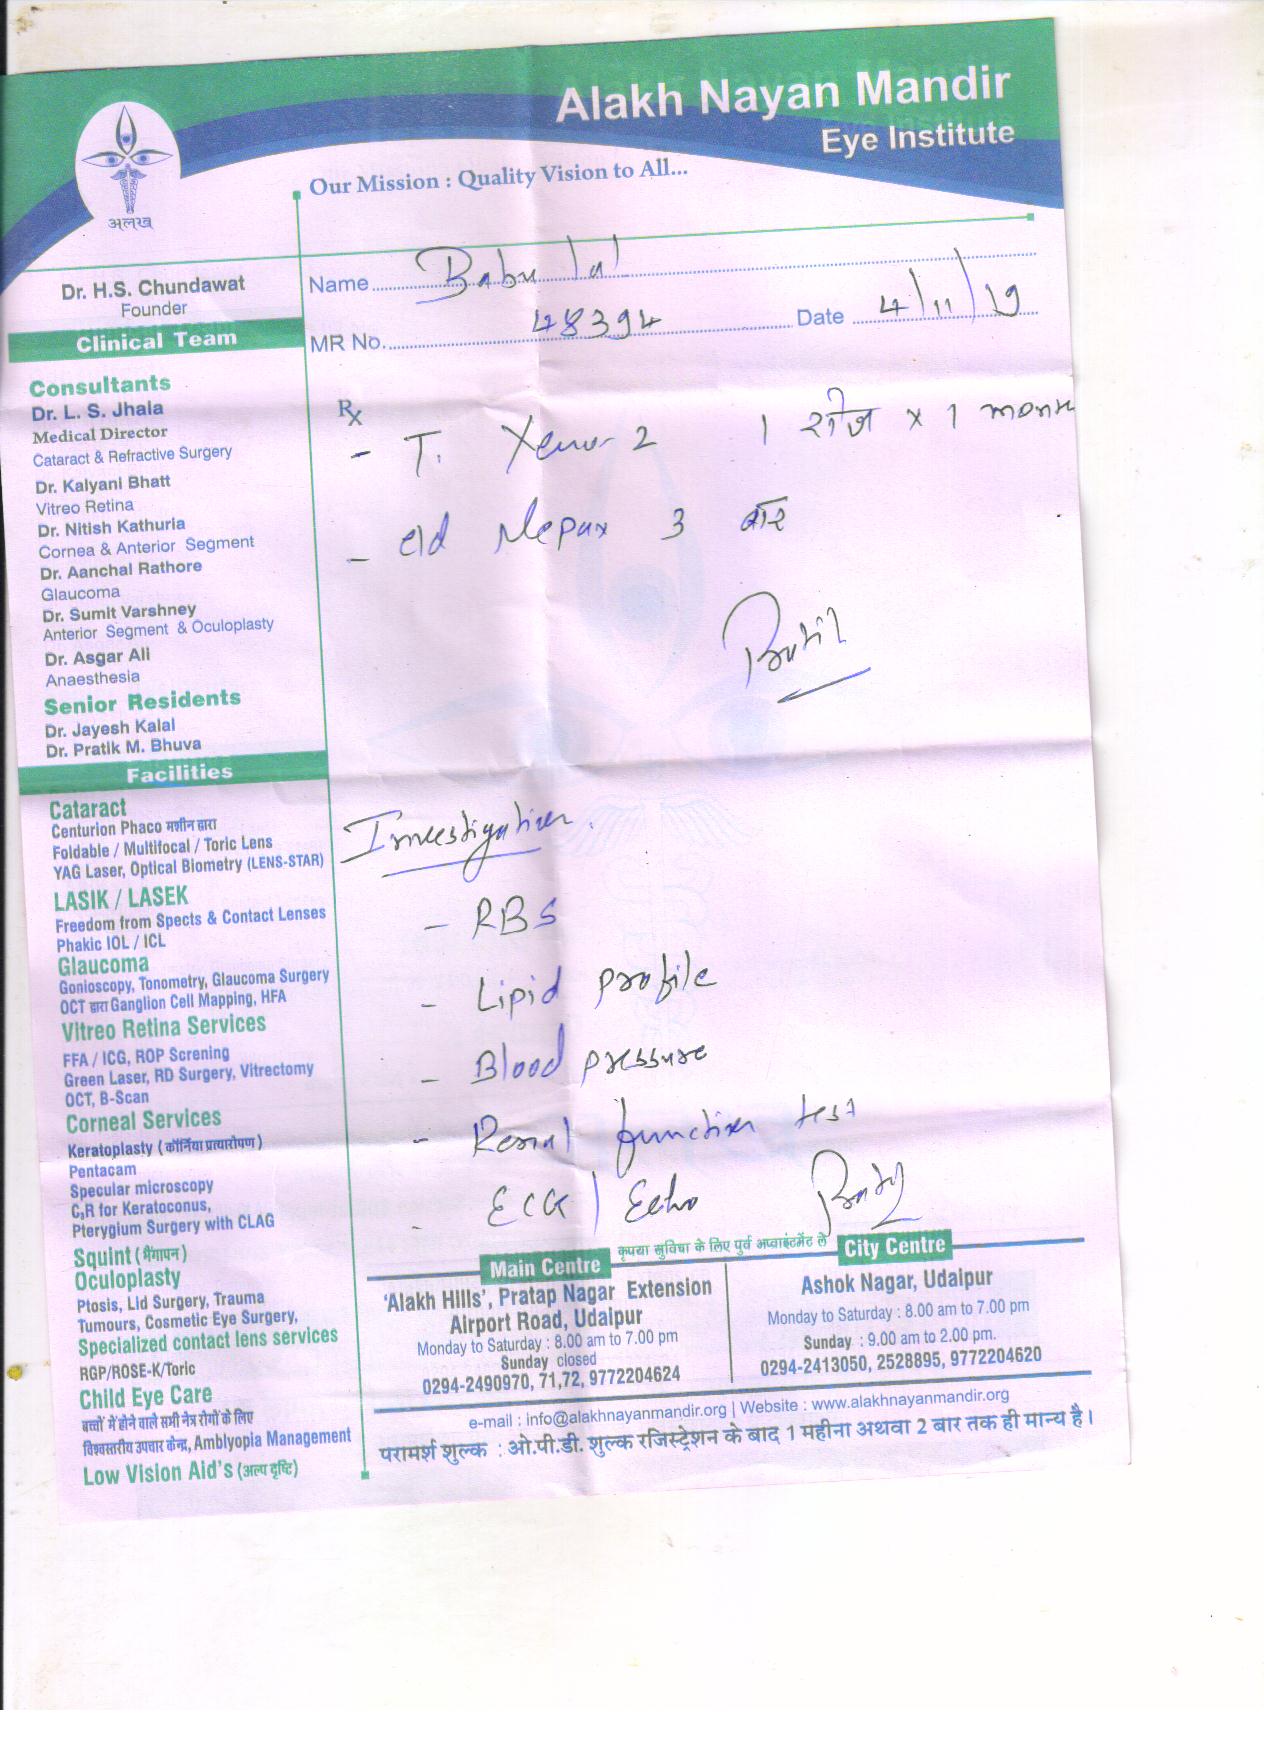 Alakh Nayan Mandir
Eye Institute
Our Mission : Quality Vision to All...
अलख
Dr. H.S. Chundawat
Founder
Clinical Team
Consultants
Dr. L. S. Jhala
Medical Director
Cataract & Refractive Surgery
Dr. Kalyani Bhatt
Vitreo Retina
Dr. Nitish Kathuria
Cornea & Anterior Segment
Dr. Aanchal Rathore
Glaucoma
Dr. Sumit Varshney
Anterior Segment & Oculoplasty
Dr. Asgar Ali
Anaesthesia
Senior Residents
Dr. Jayesh Kalal
Dr. Pratik M. Bhuva
Facilities
Cataract
Centurion Phaco मशीन द्वारा
Foldable / Multifocal / Toric Lens
YAG Laser, Optical Biometry (LENS-STAR)
LASIK / LASEK
Freedom from Spects & Contact Lenses
Phakic IOL / ICL
Glaucoma
Gonioscopy, Tonometry, Glaucoma Surgery
OCT द्वारा Ganglion Cell Mapping, HFA
Vitreo Retina Services
FFA / ICG, ROP Screning
Green Laser, RD Surgery, Vitrectomy
OCT, B-Scan
Corneal Services
Keratoplasty (कॉर्निया प्रत्यारोपण)
Pentacam
Specular microscopy
C₃R for Keratoconus,
Pterygium Surgery with CLAG
Squint (भैंगापन)
Oculoplasty
Ptosis, Lid Surgery, Trauma
Tumours, Cosmetic Eye Surgery,
Specialized contact lens services
RGP/ROSE-K/Toric
Child Eye Care
बच्चों में होने वाले सभी नेत्र रोगों के लिए
विश्वस्तरीय उपचार केन्द्र, Amblyopia Management
Low Vision Aid's (अल्प दृष्टि)
Name Babu lal
MR No. 48394 Date 4/11/19
Rx
- T. 2 1 रोज x 1 month
- e/d Nepax 3 बार
Investigation.
- RBS
- Lipid profile
- Blood pressure
- Renal function test
- ECG / Echo
कृपया सुविधा के लिए पुर्व अप्वाइंटमेंट ले
Main Centre
'Alakh Hills', Pratap Nagar Extension
Airport Road, Udaipur
Monday to Saturday : 8.00 am to 7.00 pm
Sunday closed
0294-2490970, 71,72, 9772204624
City Centre
Ashok Nagar, Udaipur
Monday to Saturday : 8.00 am to 7.00 pm
Sunday : 9.00 am to 2.00 pm.
0294-2413050, 2528895, 9772204620
e-mail : info@alakhnayanmandir.org | Website : www.alakhnayanmandir.org
परामर्श शुल्क : ओ.पी.डी. शुल्क रजिस्ट्रेशन के बाद 1 महीना अथवा 2 बार तक ही मान्य है।